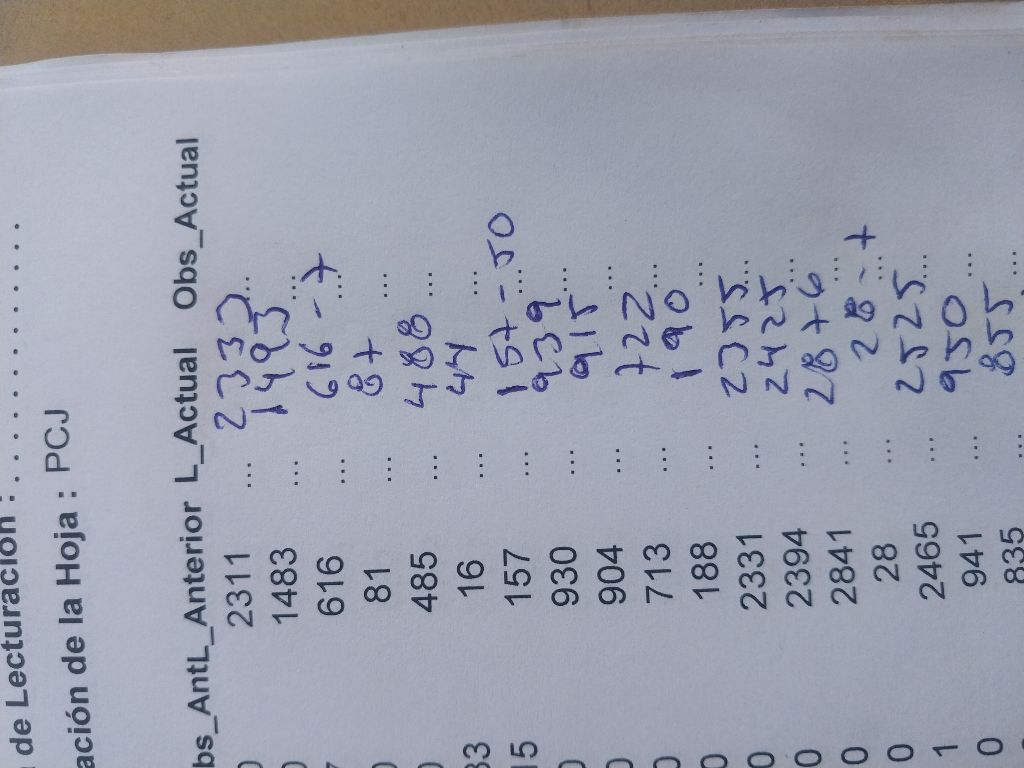 de Lecturación : . . . . . . . . . . . . . . . .
ación de la Hoja : PCJ
bs_AntL_Anterior L_Actual Obs_Actual
2311 ... 2333 ...
1483 ... 1493 ...
616 ... 616 - 7 ...
81 ... 87 ...
485 ... 488 ...
16 ... 44 ...
33 157 ... 157 - 50 ...
15 930 ... 939 ...
904 ... 915 ...
713 ... 722 ...
188 ... 190 ...
2331 ... 2355 ...
2394 ... 2425 ...
0 2841 ... 2876 ...
0 28 ... 28 - 7 ...
0 2465 ... 2525 ...
1 941 ... 950 ...
0 835 ... 855